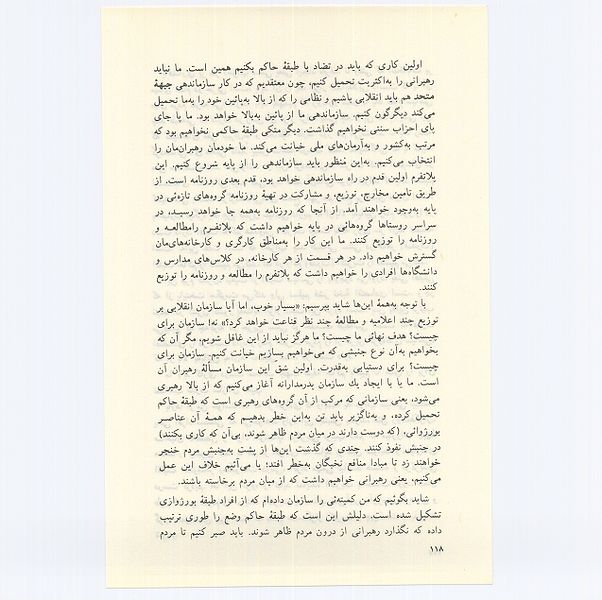 اولین کاری که باید در تضاد با طبقهٔ حاکم بکنیم همین است. ما نباید
رهبرانی را به‌اکثریت تحمیل کنیم، چون معتقدیم که در کار سازماندهی جبههٔ
متحد هم باید انقلابی باشیم و نظامی را که از بالا به‌پائین خود را به‌ما تحمیل
می‌کند دیگرگون کنیم. سازماندهی ما از پائین به‌بالا خواهد بود. ما پا جای
پای احزاب سنتی نخواهیم گذاشت. دیگر متکی طبقهٔ حاکمی نخواهیم بود که
مرتب به‌کشور و به‌آرمان‌های ملی خیانت می‌کند. ما خودمان رهبران‌مان را
انتخاب می‌کنیم. به‌این مُنظور باید سازماندهی را از پایه شروع کنیم. این
پلاتفرم اولین قدم در راه سازماندهی خواهد بود، قدم بعدی روزنامه است. از
طریق تامین مخارج، توزیع، و مشارکت در تهیهٔ روزنامه گروه‌های تازه‌ئی در
پایه به‌وجود خواهند آمد. از آنجا که روزنامه به‌همه جا خواهد رسید، در
سراسر روستاها گروه‌هائی در پایه خواهیم داشت که پلاتفرم رامطالعه و
روزنامه را توزیع کنند. ما این کار را به‌مناطق کارگری و کارخانه‌های‌مان
گسترش خواهیم داد. در هر قسمت از هر کارخانه، در کلاس‌های مدارس و
دانشگاه‌ها افرادی را خواهیم داشت که پلاتفرم را مطالعه و روزنامه را توزیع
کنند.
با توجه به‌همهٔ این‌ها شاید بپرسیم: «بسیار خوب، اما آیا سازمان انقلابی بر
توزیع چند اعلامیه و مطالعهٔ چند نظر قناعت خواهد کرد؟» نه! سازمان برای
چیست؟ هدف نهائی ما چیست؟ ما هرگز نباید از این غافل شویم، مگر آن که
بخواهیم به‌آن نوع جنبشی که می‌خواهیم بسازیم خیانت کنیم. سازمان برای
چیست؟ برای دستیابی به‌قدرت. اولین شقّ این سازمان مسألهٔ رهبران آن
است. ما یا با ایجاد یك سازمان پدرمدارانه آغاز می‌کنیم که از بالا رهبری
می‌شود، یعنی سازمانی که مرکب از آن گروه‌های رهبری است که طبقهٔ حاکم
تحمیل کرده، و به‌ناگزیر باید تن به‌این خطر بدهیم که همهٔ آن عناصر
بورژوائی، (که دوست دارند در میان مردم ظاهر شوند، بی‌آن که کاری بکنند)
در جنبش نفوذ کنند. چندی که گذشت این‌ها از پشت به‌جنبش مردم خنجر
خواهند زد تا مبادا منافع نخبگان به‌خطر افتد؛ یا می‌آئیم خلاف این عمل
می‌کنیم، یعنی رهبرانی خواهیم داشت که از میان مردم برخاسته باشند.
شاید بگوئیم که من کمیته‌ئی را سازمان داده‌ام که از افراد طبقهٔ بورژوازی
تشکیل شده است. دلیلش این است که طبقهٔ حاکم وضع را طوری ترتیب
داده که نگذارد رهبرانی از درون مردم ظاهر شوند. باید صبر کنیم تا مردم
۱۱۸